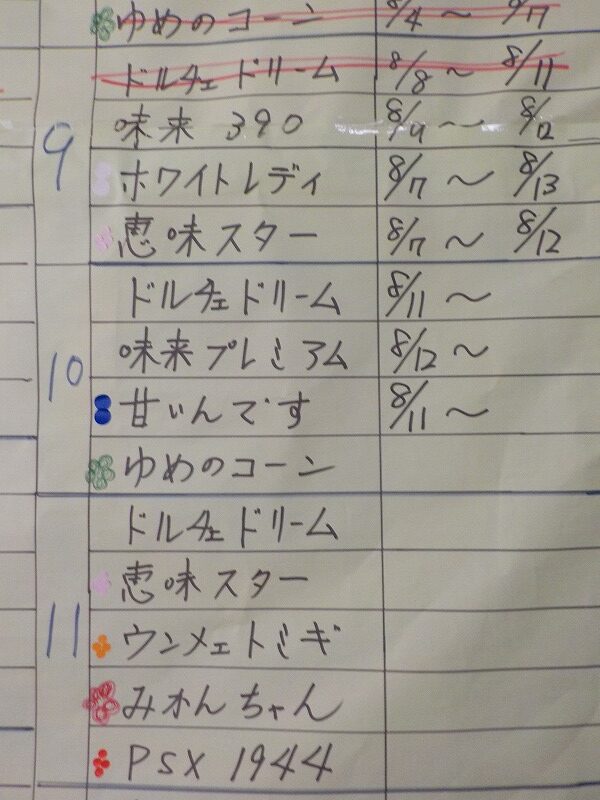 ゆめのコーン 8/4 ~ 8/17
ドルチェドリーム 8/8 ~ 8/11
9 味来 390 8/9 ~ 8/12
ホワイトレディ 8/7 ~ 8/13
恵味スター 8/7 ~ 8/12
ドルチェドリーム 8/11 ~
10 味来プレミアム 8/12 ~
甘いんです 8/11 ~
ゆめのコーン
ドルチェドリーム
恵味スター
11 ウンメェトミギ
みわんちゃん
PSX 1944